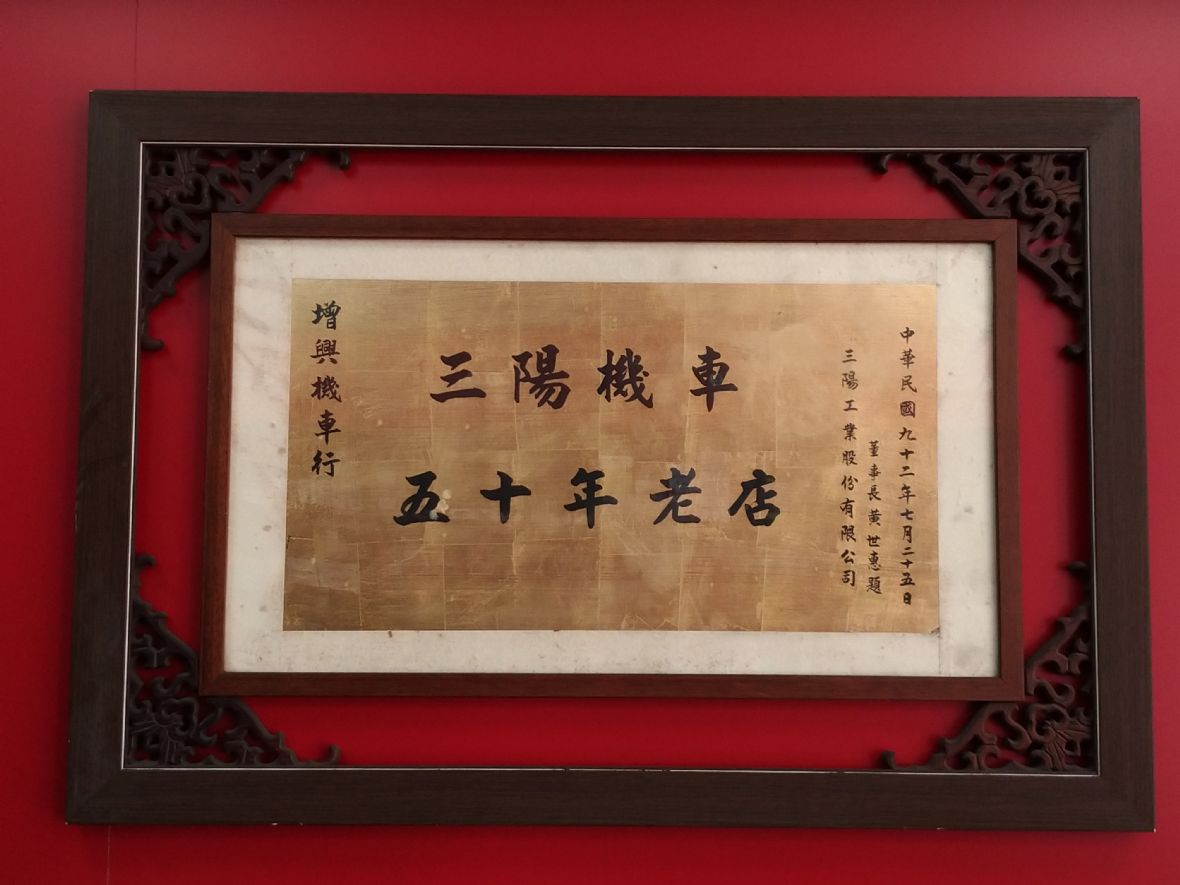 增興機車行
三陽機車
五十年老店
三陽工業股份有限公司
董事長黃世惠題
中華民國九十二年七月二十五日